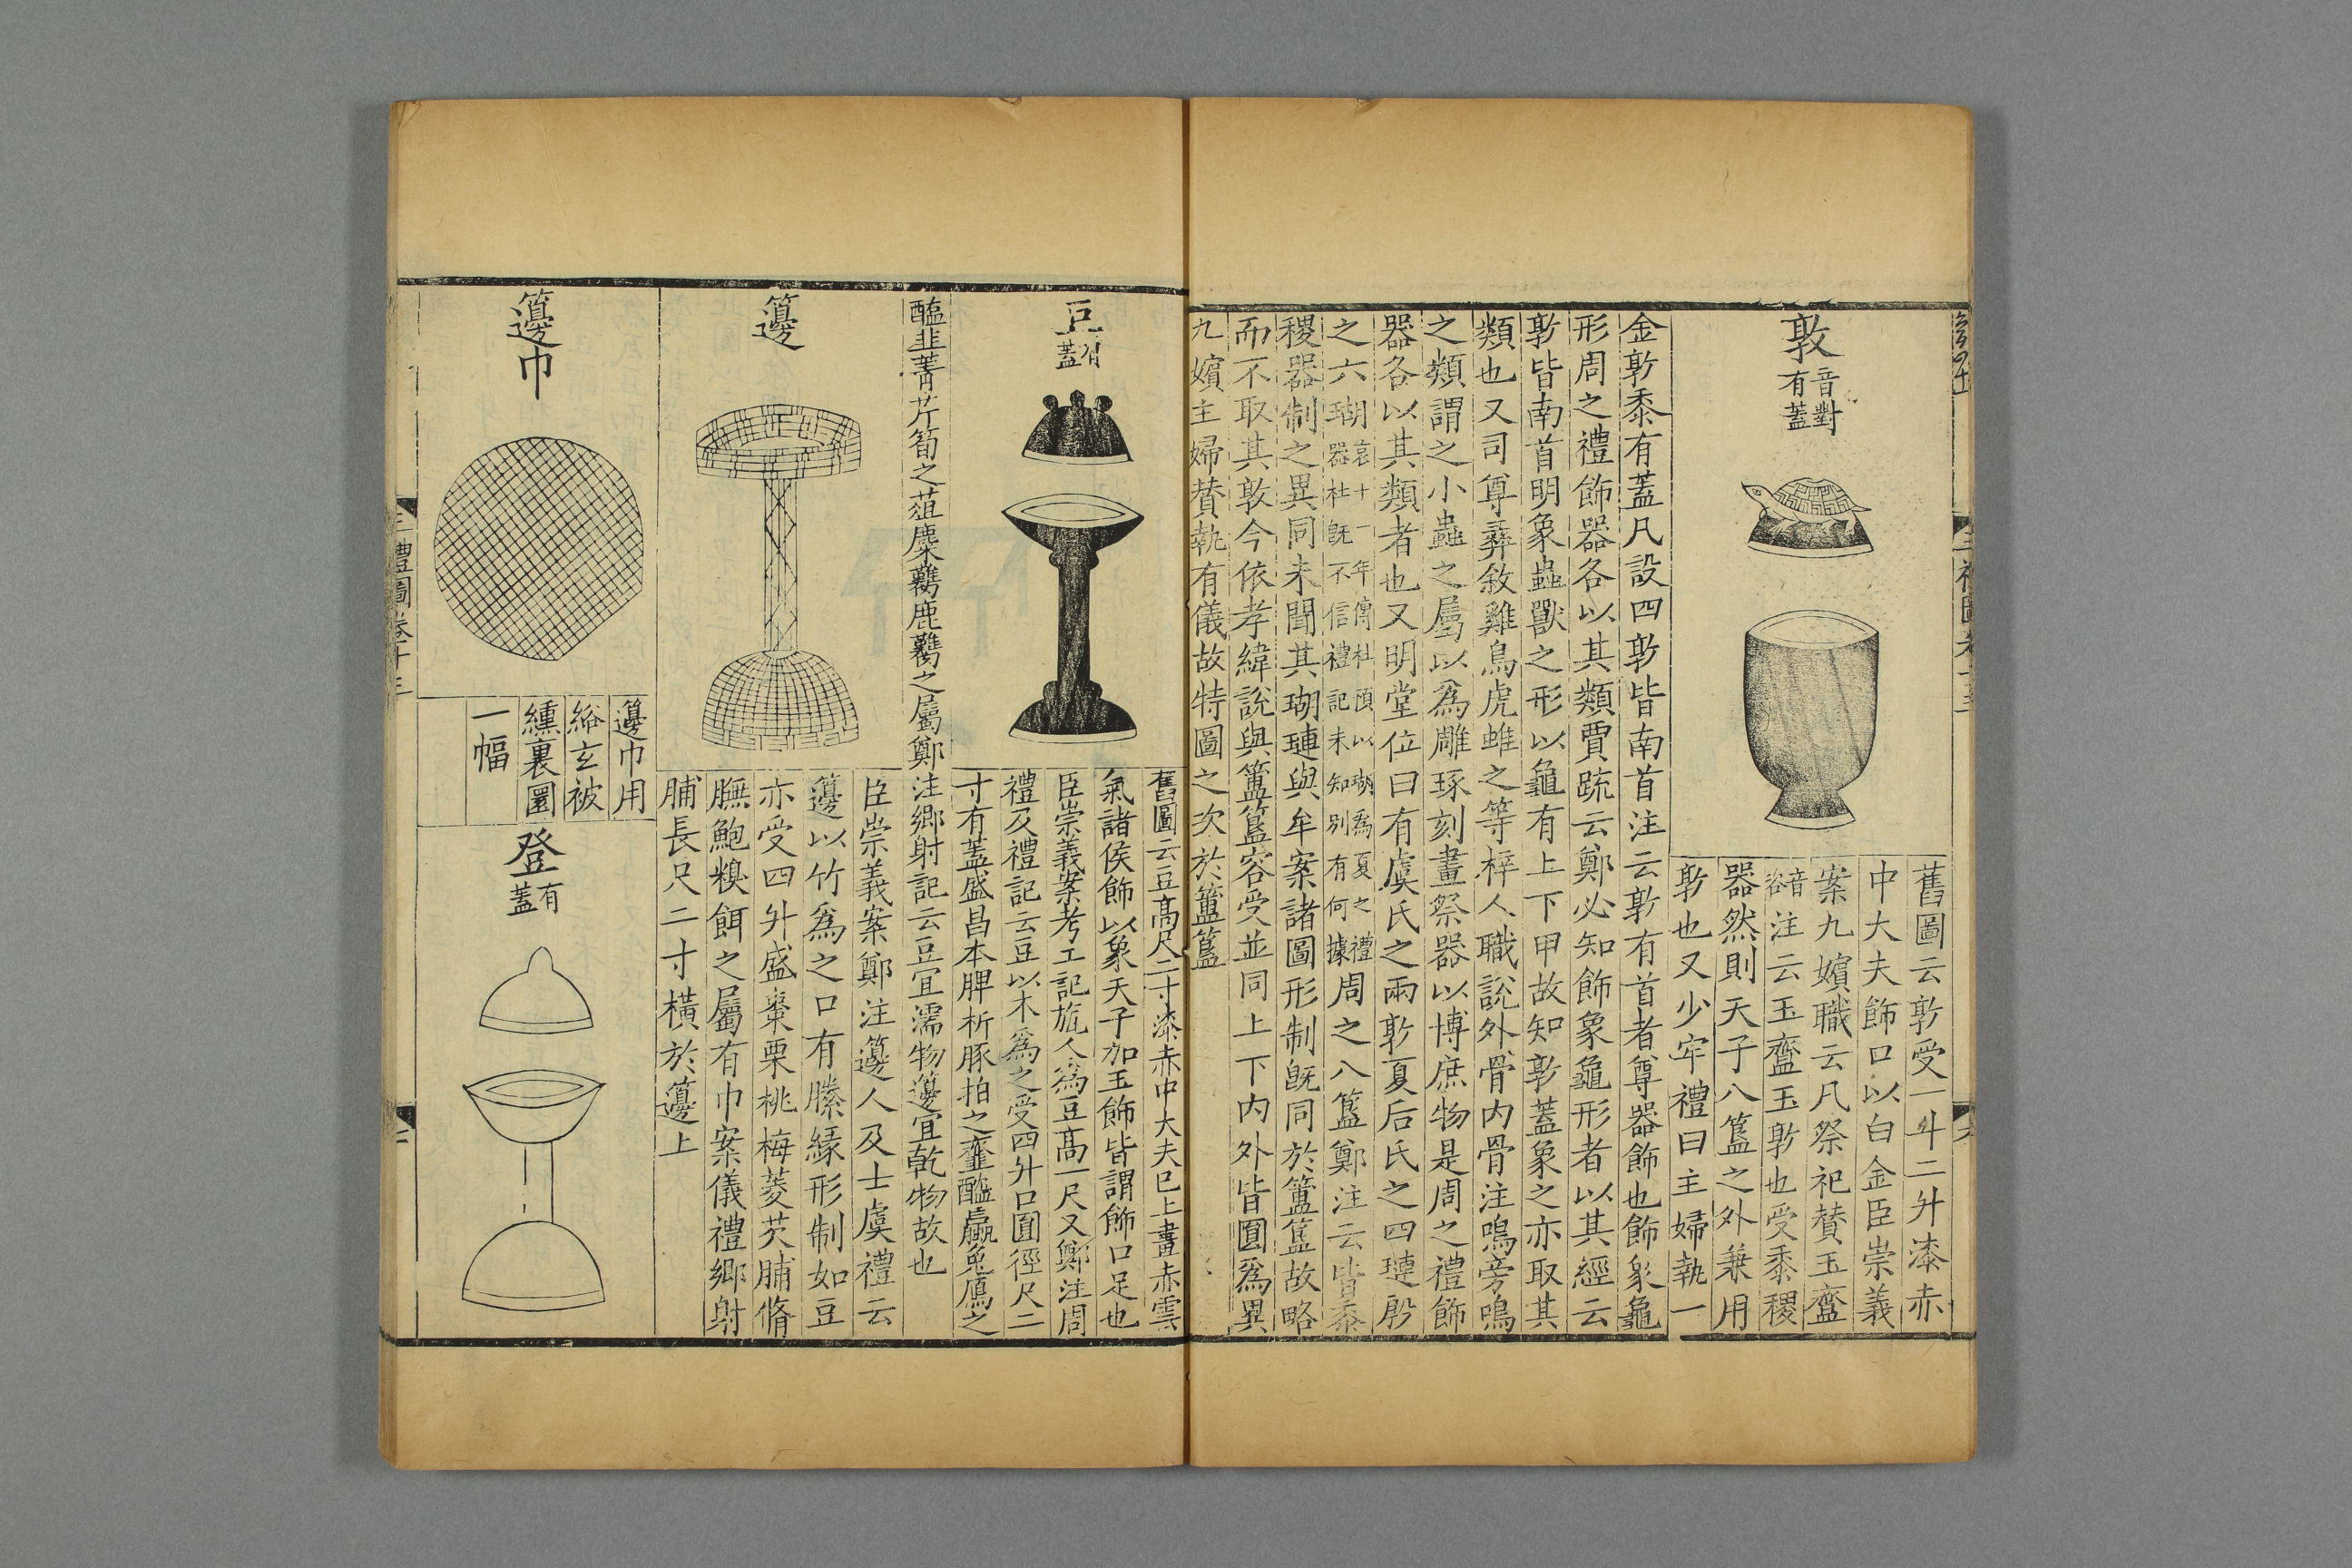 敦音對有蓋
舊圖云敦受一斗二升漆赤
中大夫飾口以白金臣崇義
案九嬪職云凡祭祀贊玉齍
音咨注云玉齍玉敦也受黍稷
器然則天子八簋之外兼用
敦也又少牢禮曰主婦執一
金敦黍有蓋凡設四敦皆南首注云敦有首者尊器飾也飾象龜
形周之禮飾器各以其類賈疏云鄭必知飾象龜形者以其經云
敦皆南首明象蟲獸之形以龜有上下甲故知敦蓋象之亦取其
類也又司尊彝敘雞鳥虎蜼之等梓人職說外骨内骨注鳴旁鳴
之類謂之小蟲之屬以爲雕琢刻畫祭器以博庶物是周之禮飾
器各以其類者也又明堂位曰有虞氏之兩敦夏后氏之四璉殷
之六瑚哀十一年傳杜預以瑚爲夏之禮器杜既不信禮記未知別有何據周之八簋鄭注云皆黍
稷器制之異同未聞其瑚璉與牟案諸圖形制既同於簠簋故略
而不取其敦今依孝緯說與簠簋容受並同上下内外皆圓爲異
九嬪主婦贊執有儀故特圖之次於簠簋
豆有蓋
舊圖云豆高尺二寸漆赤中大夫已上畫赤雲
氣諸侯飾以象天子加玉飾皆謂飾口足也
臣崇義案考工記旊人爲豆高一尺又鄭注周
禮及禮記云豆以木爲之受四升口圓徑尺二
寸有蓋盛昌本脾析豚拍之齏醢蠃兔鴈之
醢韭菁芹筍之菹麋臡鹿臡之屬鄭注鄉射記云豆宜濡物籩宜乾物故也
籩
臣崇義案鄭注籩人及士虞禮云
籩以竹爲之口有縢緣形制如豆
亦受四升盛棗栗桃梅菱芡脯脩
膴鮑糗餌之屬有巾案儀禮鄉射
脯長尺二寸橫於籩上
籩巾
籩巾用
綌玄被
纁裏圜
一幅
登有蓋
三禮圖卷十三